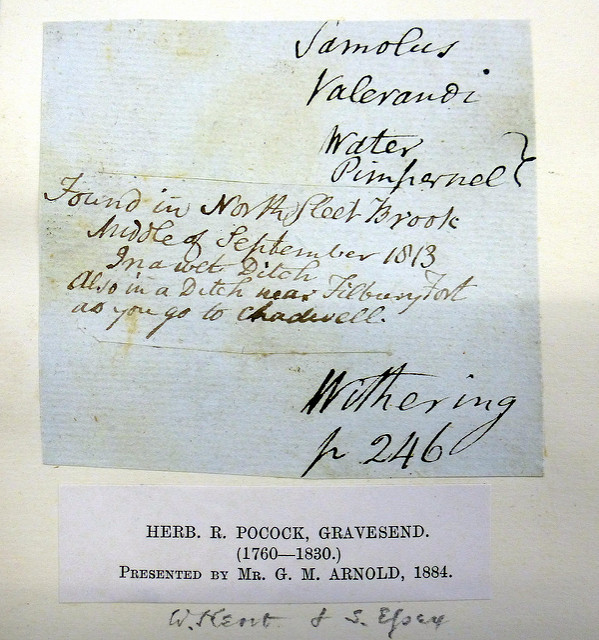 Samolus
Valerandi
Water
Pimpernel }
Found in North fleet Brook
Middle of September 1813
In a wet Ditch
Also in a Ditch near Tilbury Fort
as you go to Chadwell.
Withering
p 246
HERB. R. POCOCK, GRAVESEND.
(1760—1830.)
PRESENTED BY MR. G. M. ARNOLD, 1884.
W. Kent & S. Essex